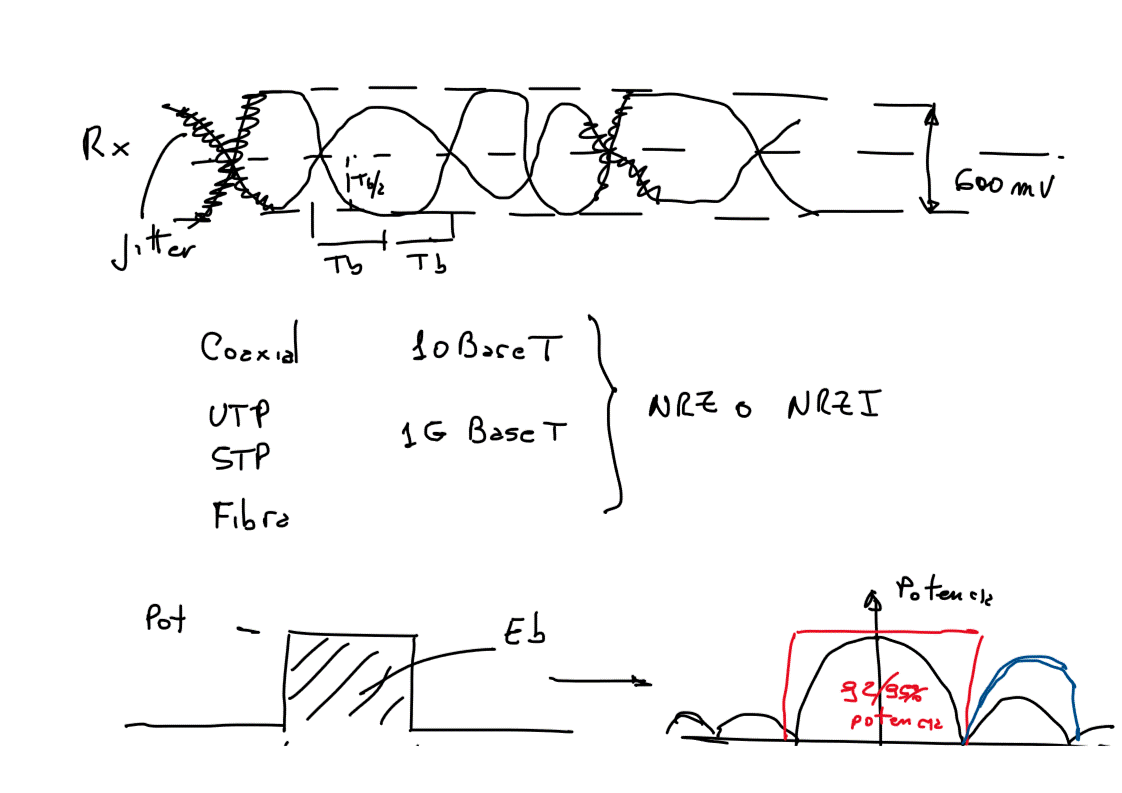 Rx
600 mV
Tb/2
Jitter
Tb Tb
Coaxial 10BaseT
UTP
1G BaseT
NRZ o NRZI
STP
Fibra
Potencia
Pot
Eb
92/95%
potencia